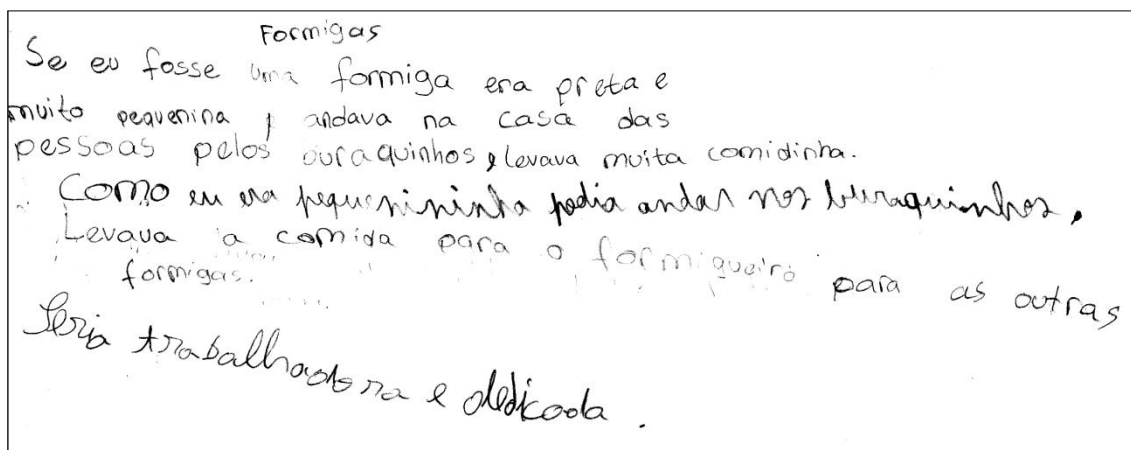 Formigas
Se eu fosse uma formiga era preta e
muito pequenina, andava na casa das
pessoas pelos ouraquinhos, levava muita comidinha.
Como eu era pequenininha podia andar nos buraquinhos.
Levava a comida para o formigueiro para as outras
formigas.
Seria trabalhadora e dedicada.